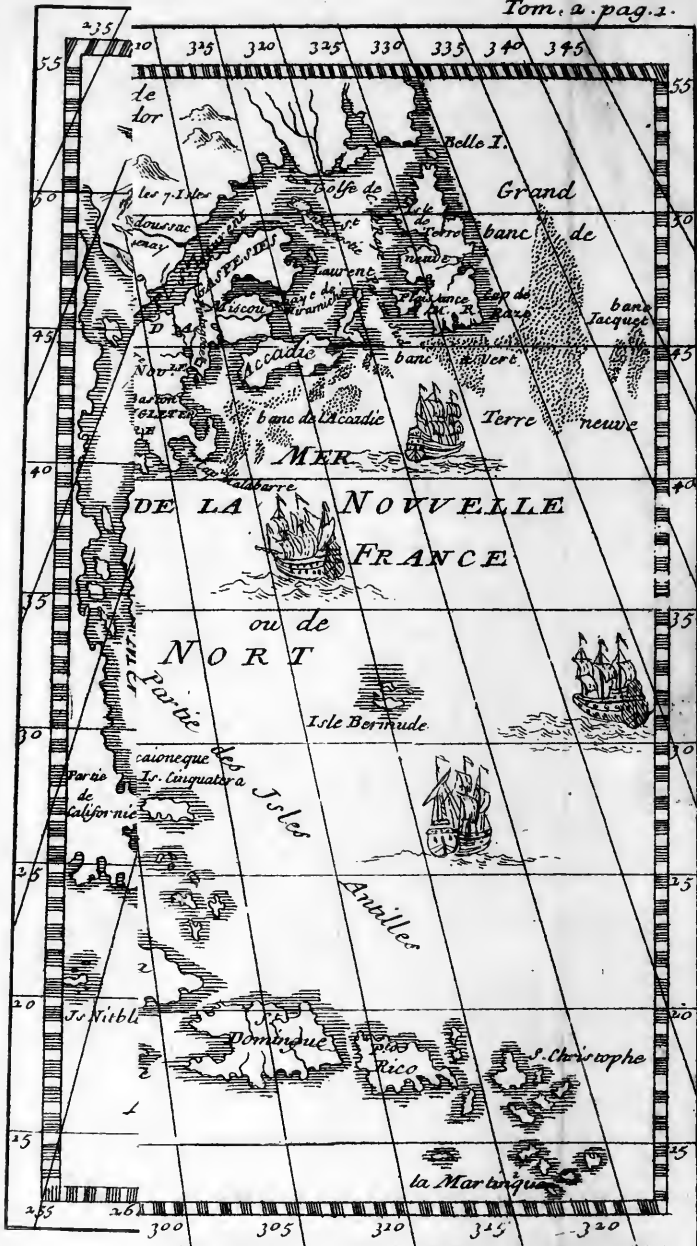 Tom. 2. pag. 1.
235
310
315
320
325
330
335
340
345
55
55
de
dor
Belle I.
les 7. Isles
Golfe de
Grand
50
50
doussac
Isle
de
Terre
neuve
banc de
St
Laurent
GASPESIES
Miscou
Baye de
Miramichi
Plaisance
Cap de
Raze
banc
Jacquet
45
45
Accadie
banc a vert
Baston
banc de l'Accadie
Terre neuve
MER
40
Cap Malabarre
40
DE LA NOVVELLE
FRANCE
35
35
ou de
NORT
Partie des Isles
Antilles
Isle Bermude
30
30
caioneque
Is. Cinquatera
Partie
de
Californie
25
25
20
20
Is Nitbl
St
Domingue
Pto
Rico
S. Christophe
15
15
la Martinique
255
26
300
305
310
315
320